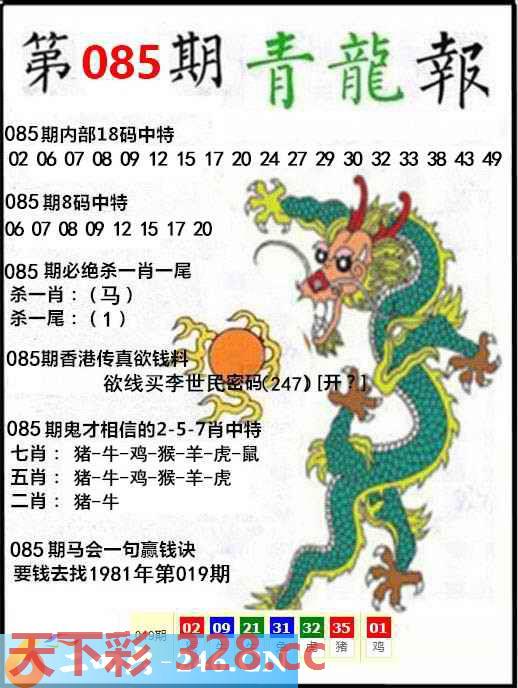 第085期青龍報
085期内部18码中特
02 06 07 08 09 12 15 17 20 24 27 29 30 32 33 38 43 49
085期8码中特
06 07 08 09 12 15 17 20
085期必绝杀一肖一尾
杀一肖：(马)
杀一尾：(1)
085期香港传真欲钱料
欲线买李世民密码(247)[开?]
085期鬼才相信的2-5-7肖中特
七肖：猪-牛-鸡-猴-羊-虎-鼠
五肖：猪-牛-鸡-猴-羊-虎
二肖：猪-牛
085期马会一句赢钱诀
要钱去找1981年第019期
02 09 21 31 32 35 01
虎 猪 鸡
天下彩-328.cc